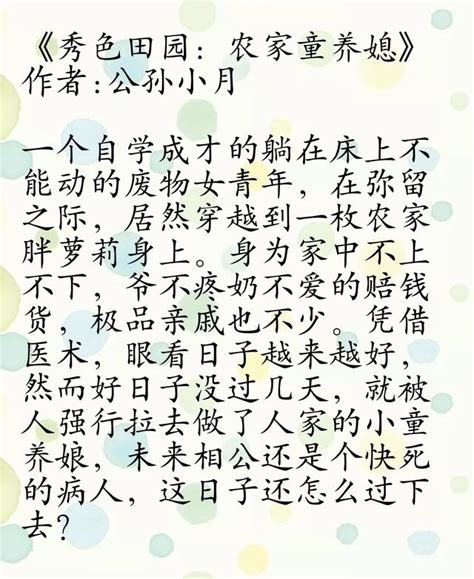 《秀色田园：农家童养媳》
作者:公孙小月
一个自学成才的躺在床上不
能动的废物女青年，在弥留
之际，居然穿越到一枚农家
胖萝莉身上。身为家中不上
不下，爷不疼奶不爱的赔钱
货，极品亲戚也不少。凭借
医术，眼看日子越来越好，
然而好日子没过几天，就被
人强行拉去做了人家的小童
养娘，未来相公还是个快死
的病人，这日子还怎么过下
去？